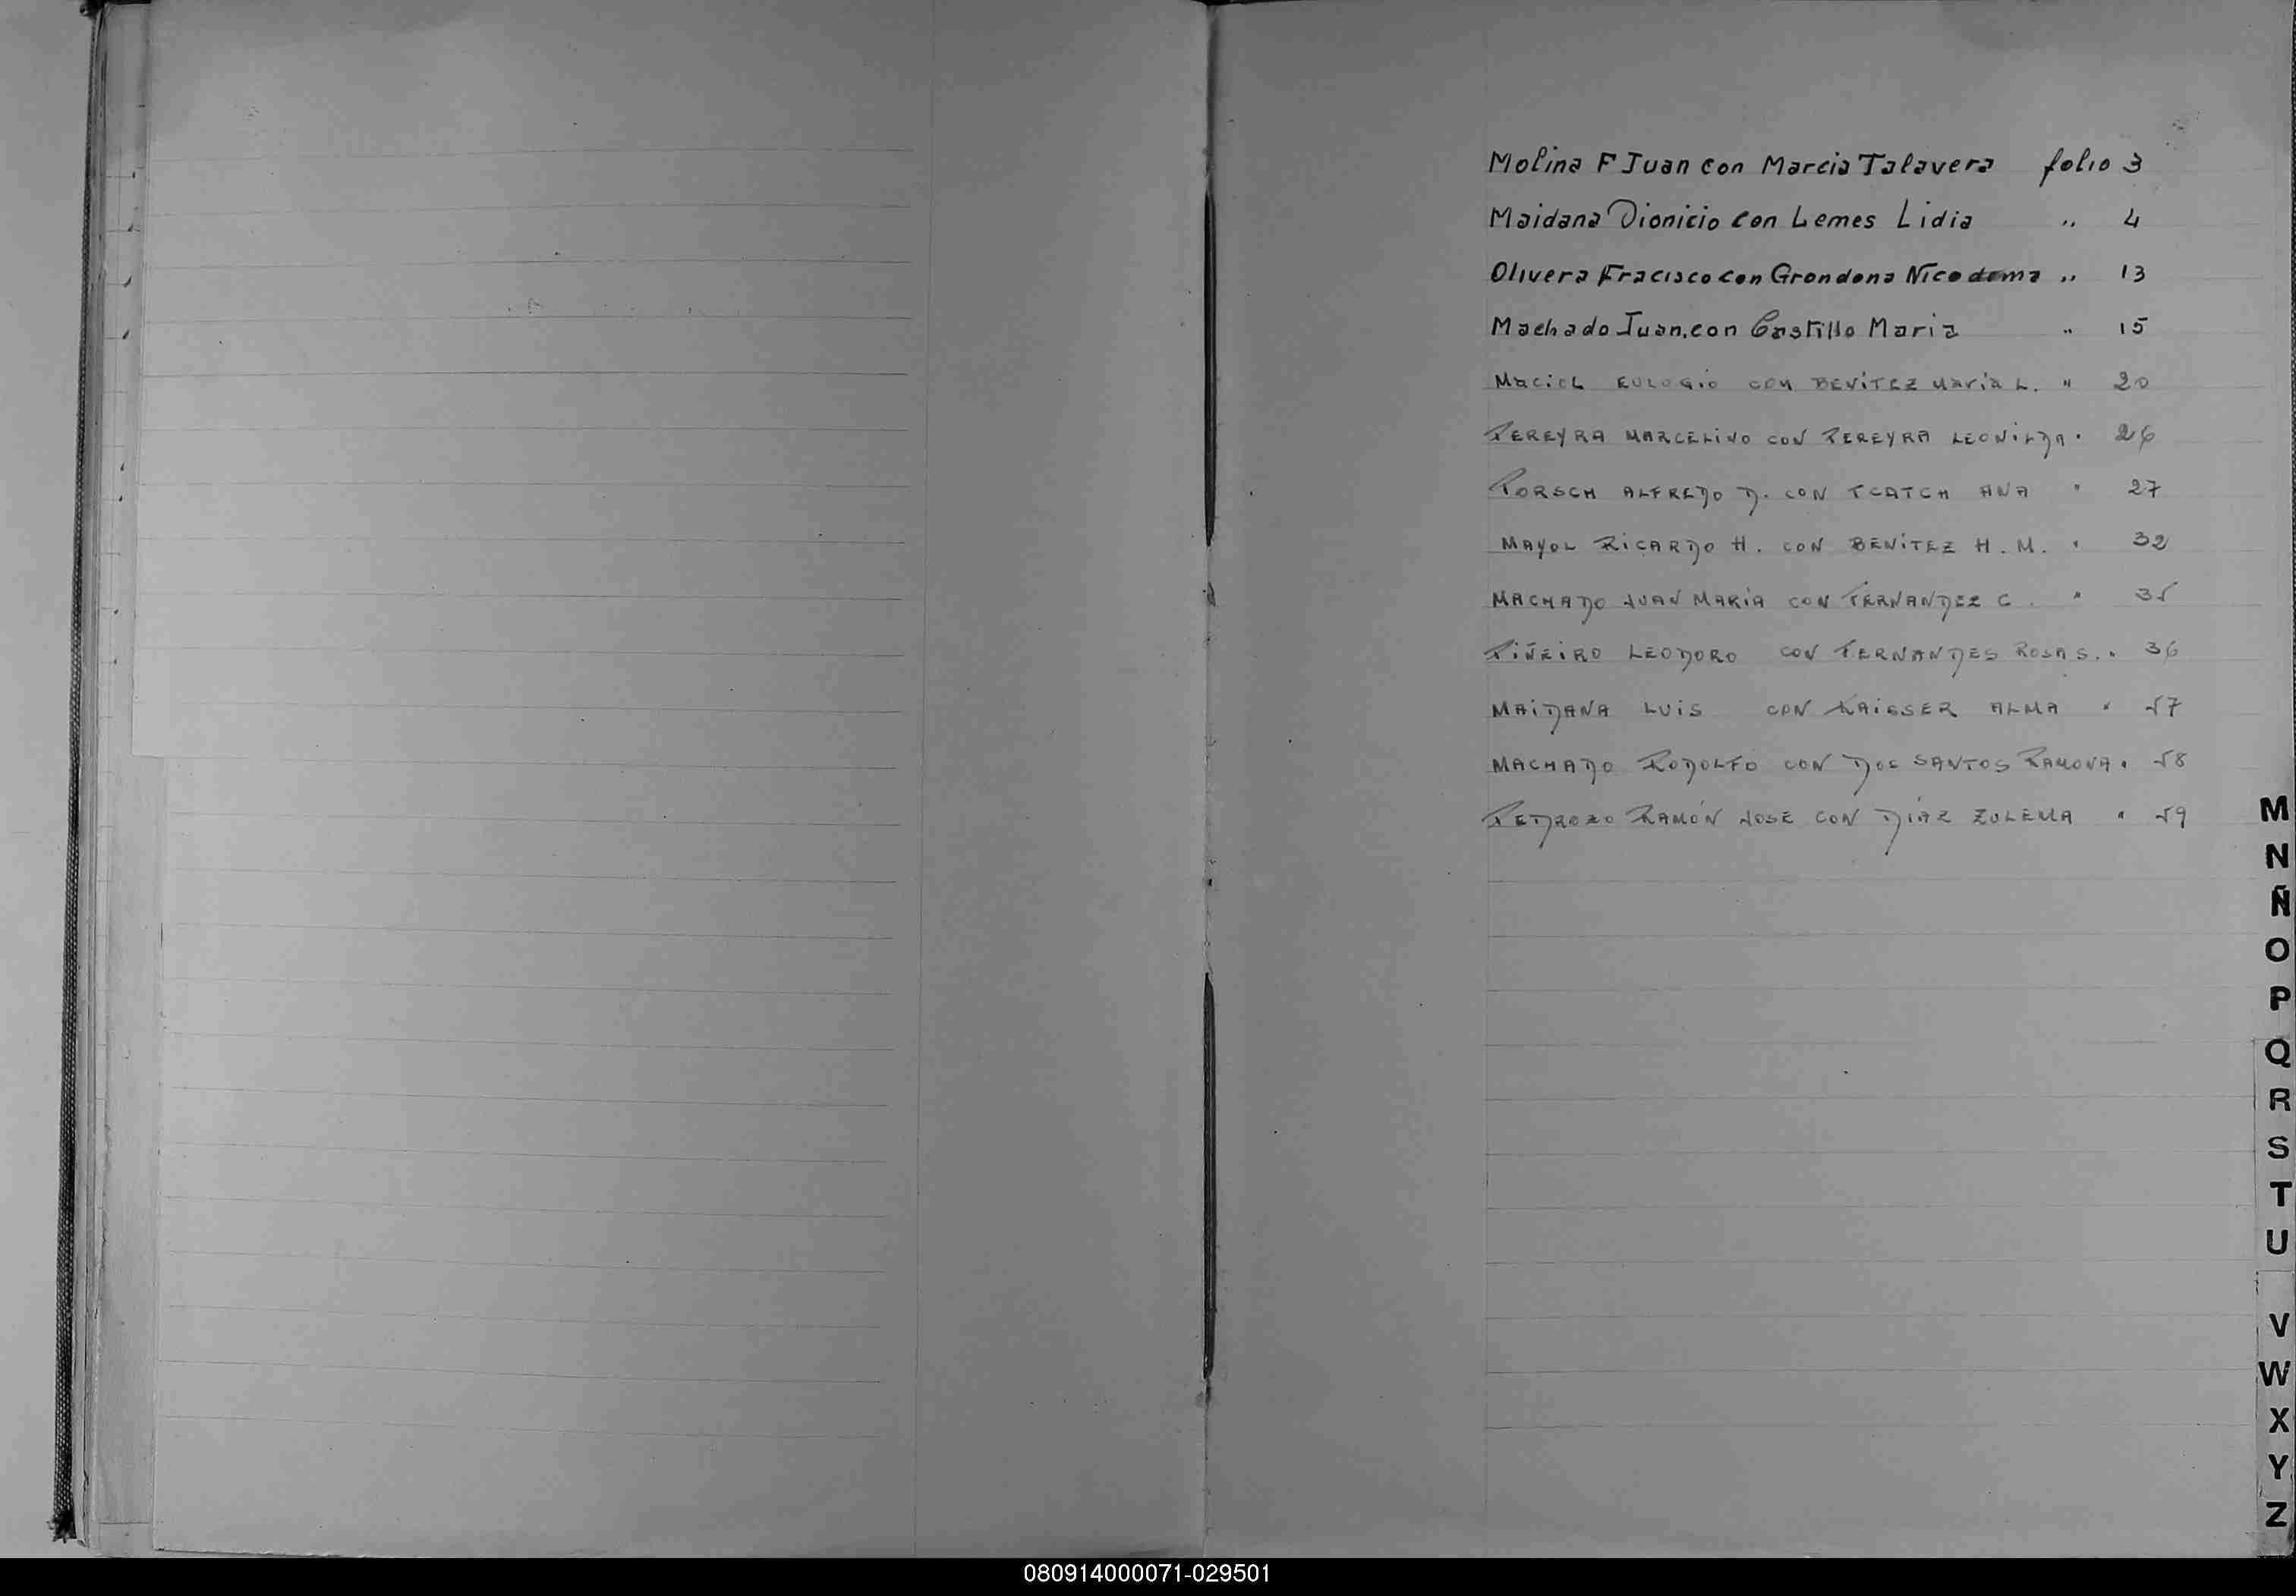 Molina F Juan con Marcia Talavera folio 3
Maidana Dionicio con Lemes Lidia " 4
Olivera Fracisco con Grondona Nicodema " 13
Machado Juan, con Castillo Maria " 15
Maciel EULOGIO CON BENITEZ María L. " 20
PEREYRA MARCELINO CON PEREYRA LEONILDA " 26
PORSCH ALFREDO D. CON TCATCH ANA " 27
MAYOL RICARDO H. CON BENITEZ H. M. " 32
MACHADO JUAN MARÍA CON FERNANDEZ C. " 35
PIÑEIRO LEODORO CON FERNANDES ROSA S. " 36
MAIDANA LUIS CON KAISSER ALMA " 57
MACHADO RODOLFO CON DOS SANTOS RAMONA " 58
PEDROZO RAMÓN JOSE CON DÍAZ ZULEMA " 59
M
N
Ñ
O
P
Q
R
S
T
U
V
W
X
Y
Z
080914000071-029501